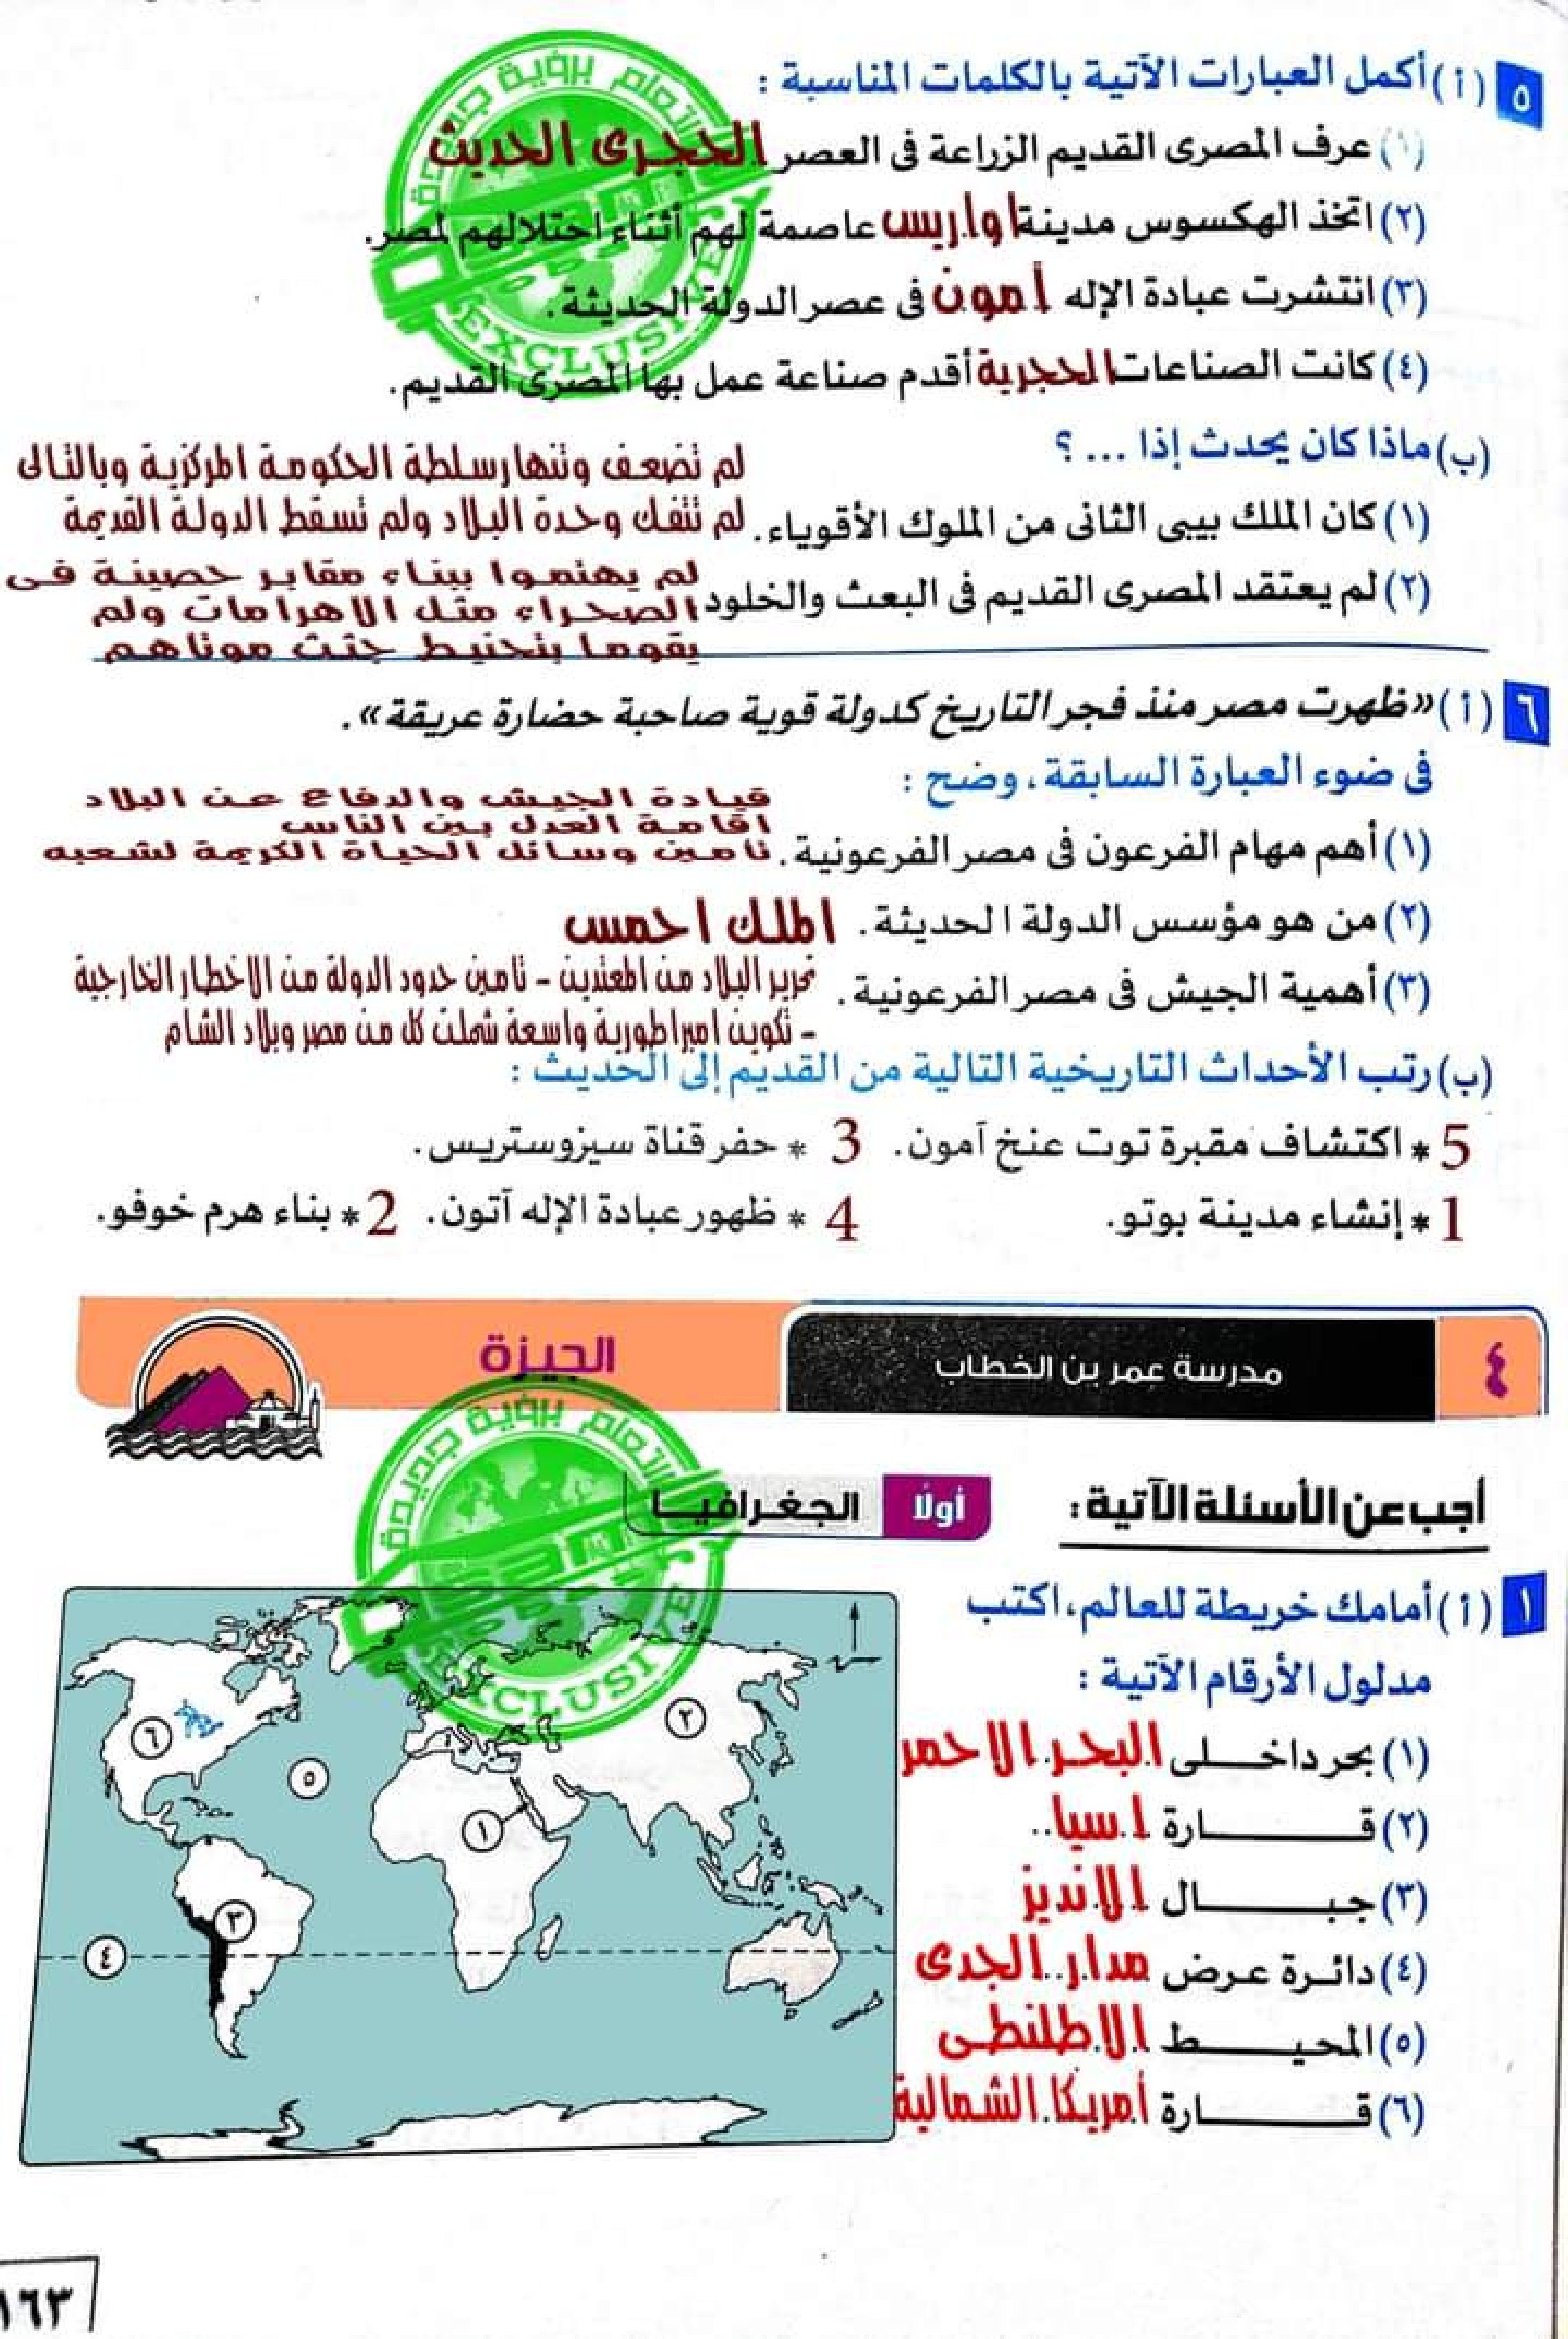 ٥ (أ) أكمل العبارات الآتية بالكلمات المناسبة :
(١) عرف المصرى القديم الزراعة فى العصر الحجرى الحديث
(٢) اتخذ الهكسوس مدينة اواريس عاصمة لهم أثناء احتلالهم لمصر.
(٣) انتشرت عبادة الإله أمون فى عصر الدولة الحديثة.
(٤) كانت الصناعات الحجرية أقدم صناعة عمل بها المصرى القديم.
(ب) ماذا كان يحدث إذا ... ؟
(١) كان الملك بيبى الثانى من الملوك الأقوياء.
لم تضعف وتنهار سلطة الحكومة المركزية وبالتالى
لم تتفك وحدة البلاد ولم تسقط الدولة القديمة
(٢) لم يعتقد المصرى القديم فى البعث والخلود
لم يهتموا ببناء مقابر حصينة فى
الصحراء مثل الاهرامات ولم
يقوما بتحنيط جثث موتاهم
٦ (أ) «ظهرت مصر منذ فجر التاريخ كدولة قوية صاحبة حضارة عريقة».
فى ضوء العبارة السابقة، وضح :
(١) أهم مهام الفرعون فى مصر الفرعونية.
قيادة الجيش والدفاع عن البلاد
اقامة العدل بين الناس
تامين وسائل الحياة الكريمة لشعبه
(٢) من هو مؤسس الدولة الحديثة. الملك احمس
(٣) أهمية الجيش فى مصر الفرعونية.
تحرير البلاد من المعتدين - تامين حدود الدولة من الاخطار الخارجية
- تكوين امبراطورية واسعة شملت كل من مصر وبلاد الشام
(ب) رتب الأحداث التاريخية التالية من القديم إلى الحديث :
5 * اكتشاف مقبرة توت عنخ آمون. 3 * حفر قناة سيزوستريس.
1 * إنشاء مدينة بوتو. 4 * ظهور عبادة الإله آتون. 2 * بناء هرم خوفو.
٤ مدرسة عمر بن الخطاب الجيزة
أجب عن الأسئلة الآتية : أولًا الجغرافيا
١ (أ) أمامك خريطة للعالم، اكتب
مدلول الأرقام الآتية :
(١) بحر داخلى البحر الاحمر
(٢) قارة اسيا
(٣) جبال الانديز
(٤) دائرة عرض مدار الجدى
(٥) المحيط الاطلنطى
(٦) قارة أمريكا الشمالية
٦
٢
٥
١
٣
٤
التعلم برؤية جديدة
EXCLUSIVE
التعلم برؤية جديدة
EXCLUSIVE
١٦٣